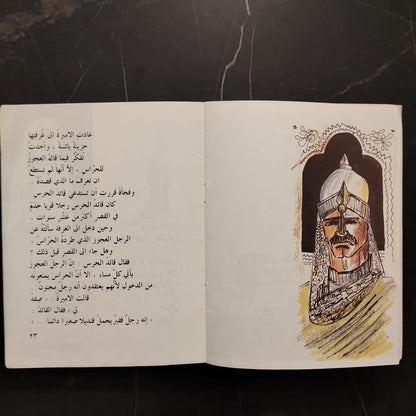 عادت الاميرة الى غرفتها
حزينة يائسة ، وأخذت
تفكّر فيما قالهُ العجوز
للحرّاس ، إلاّ أنها لم تستطع
ان تعرف ما الذي قصدهُ .
وفجأة قررت أن تستدعي قائد الحرس .
كان قائد الحرس رجلا قويا خدم
في القصر أكثر من عشر سنوات ،
وحين دخل الى الغرفة سألتهُ عن
الرجل العجوز الذي طردهُ الحرّاسُ ،
وهل جاء الى القصر قبل ذلك ؟
فقال قائد الحرس : إنّ الرجل العجوز
يأتي كلّ مساء ، الا أنّ الحرّاس يمنعونه
من الدخول لأنهم يعتقدون أنه رجلٌ مجنون .
قالت الاميرةُ : « صفهُ
لي » فقال القائدُ :
« إنه رجلٌ فقيرٌ يحملُ قنديلا صغيرا دائما ... »
٢٣